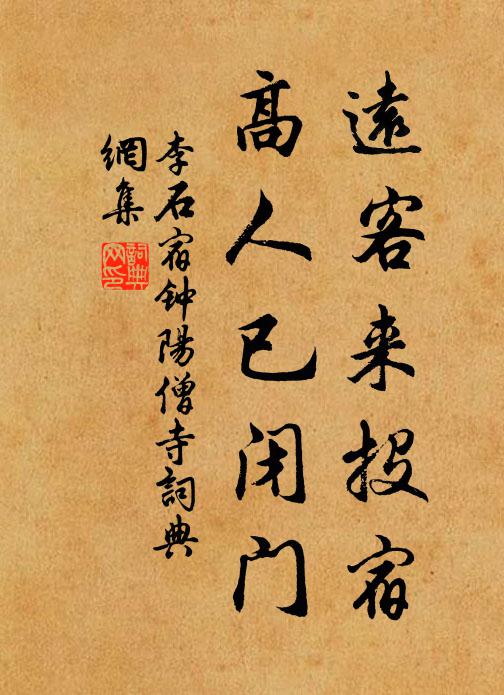 遠客来投宿
高人已闭门
李石宿钟陽僧寺詞典
網集
詞典
网印